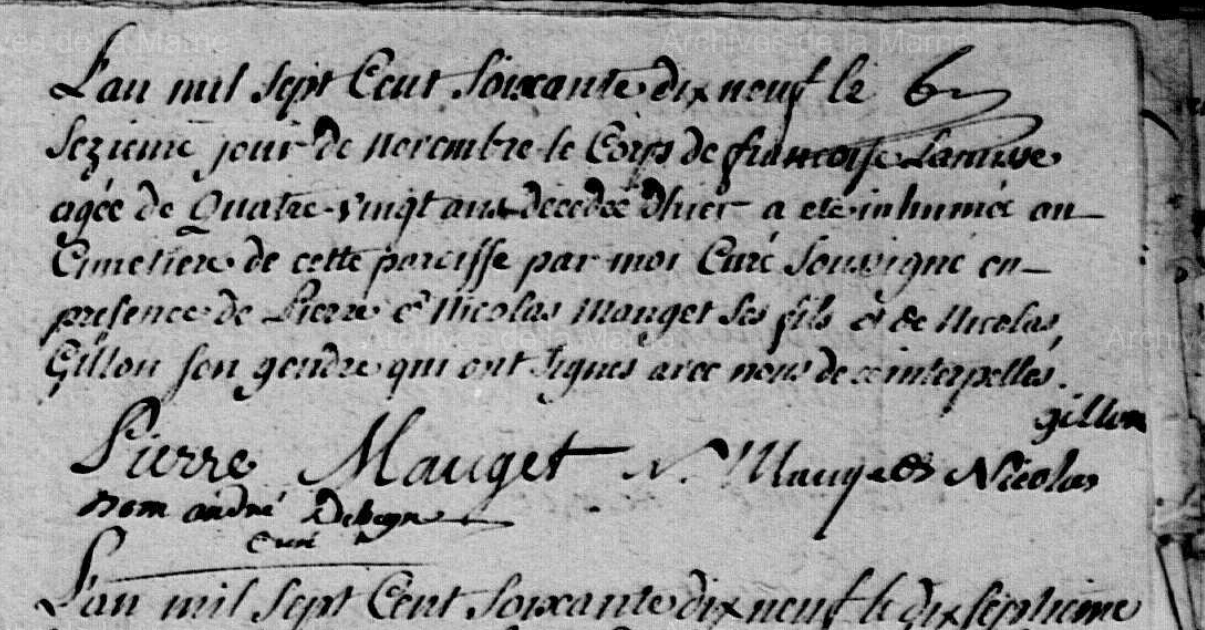 Archives de la Marne
Archives de la Marne
L'an mil sept Cent Soixante dix neuf le
Sezieme jour de novembre le Corps de francoise
agée de Quatre-vingt ans decedée d'hier a eté inhumée au
Cimetiere de cette paroisse par moi Curé Soussigné en
presence de Pierre et Nicolas Mauget ses fils et de Nicolas
Gillon son gendre qui ont signés avec nous de ce interpellés.
gillon
Pierre Mauget N. Mauget Nicolas
Archives de la Marne
Archives
Dom andré
Curé
L'an mil sept Cent Soixante dix neuf le dix septieme